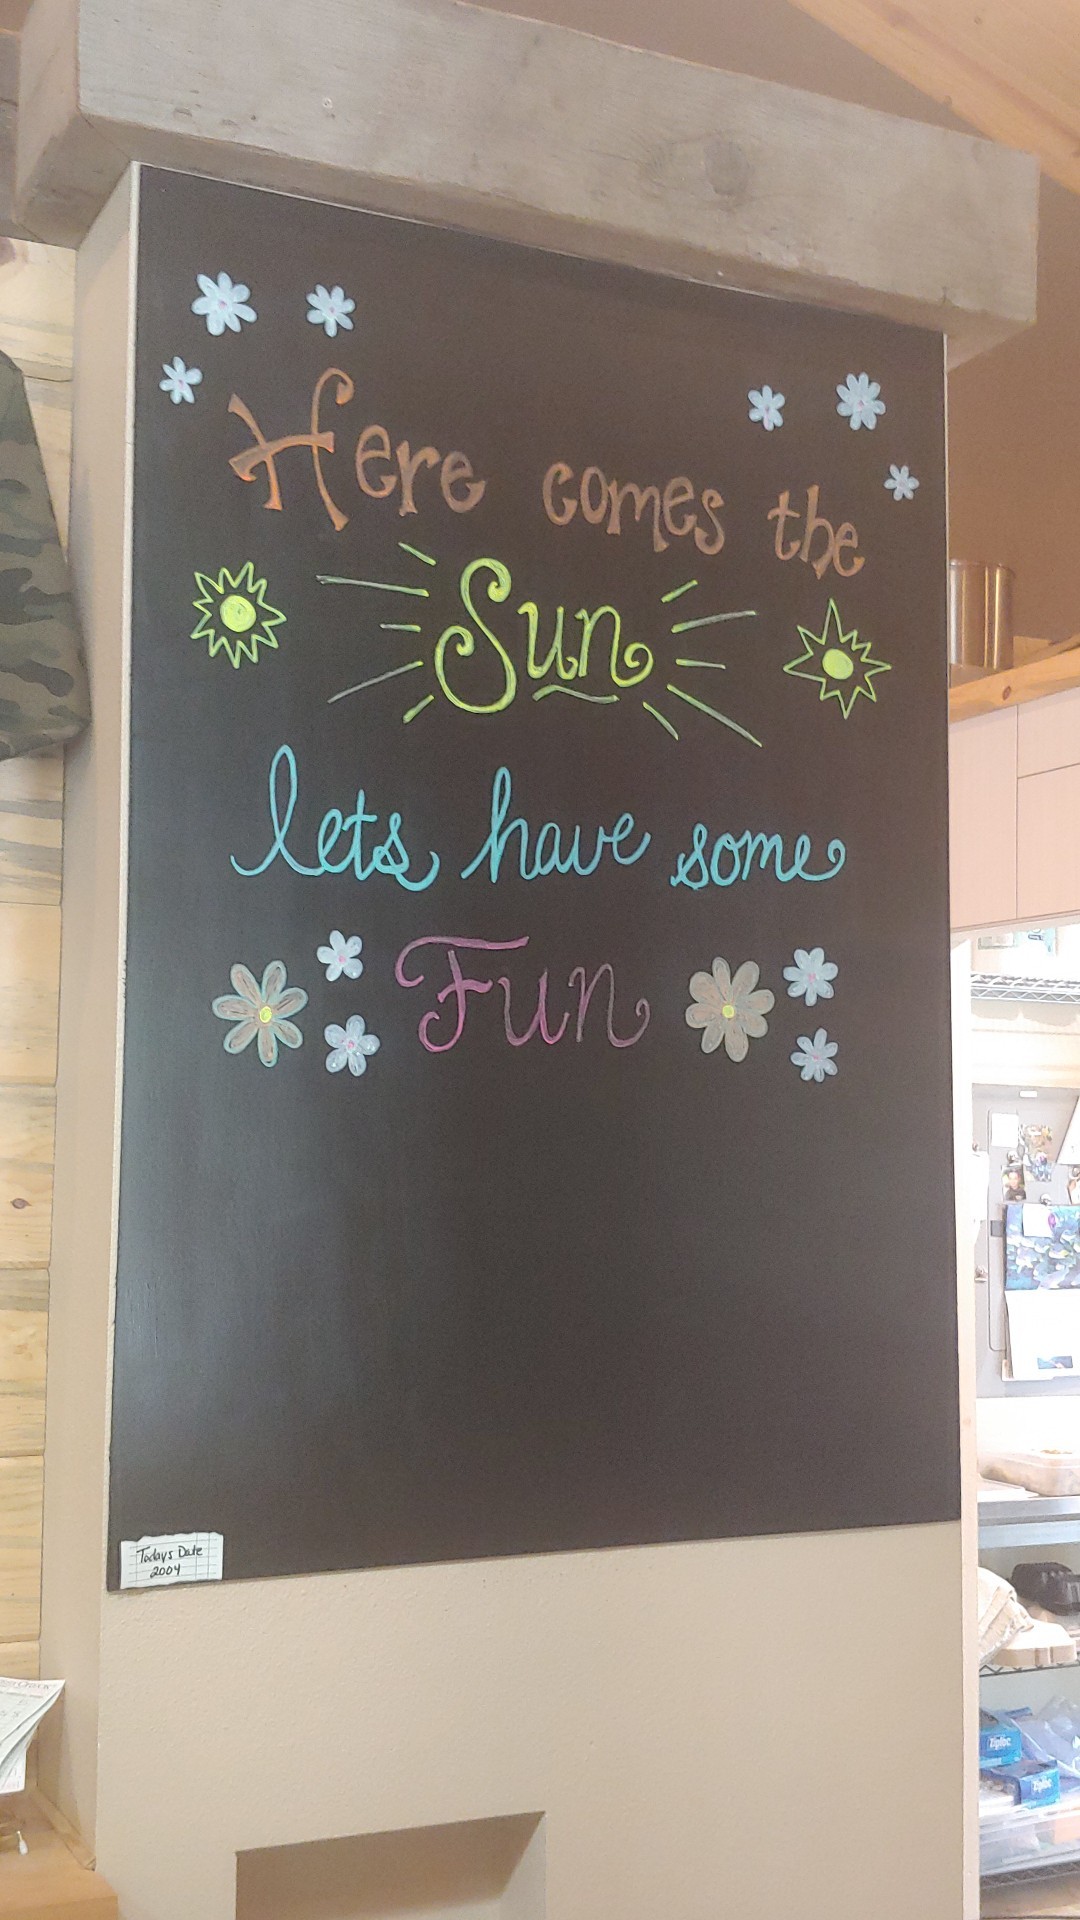 Here comes the
Sun
lets have some
Fun
Todays Date
2004
Ziploc
Ziploc